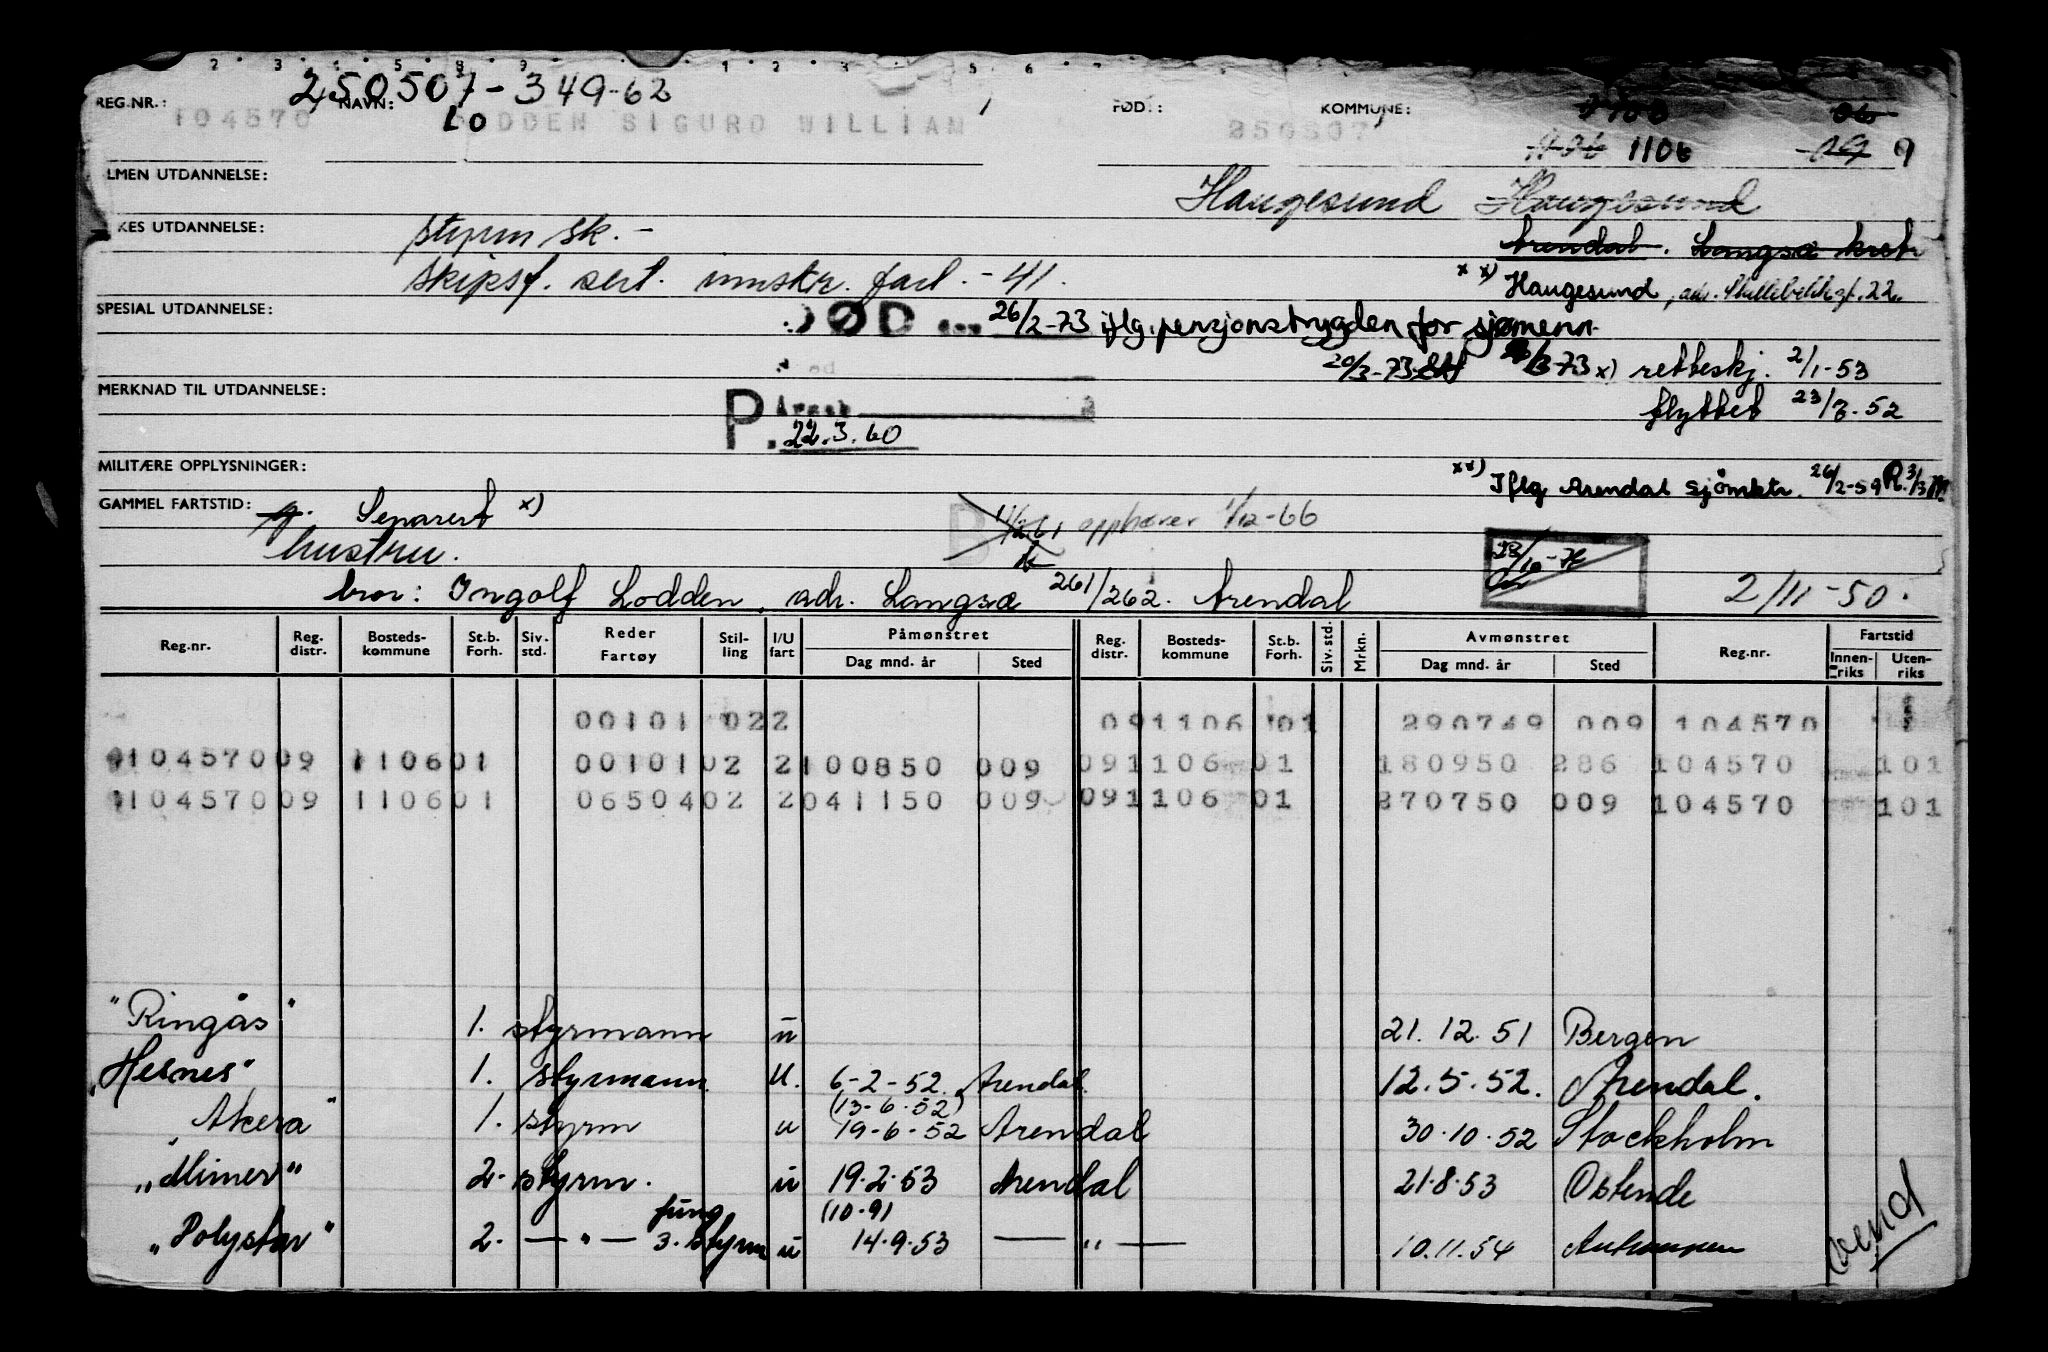 250507-349-62
REG.NR.: NAVN: FØD.: KOMMUNE:
104570 LODDEN SIGURD WILLIAM 250507
1106 9
LMEN UTDANNELSE:
Haugesund Haugesund
KES UTDANNELSE: styrm sk. -
Arendal. Langsæ
skipsf. sert. innskr. fart - 41.
xx) Haugesund, adr. 22.
SPESIAL UTDANNELSE:
ØD 26/2-73 iflg. pensjonstrygden for sjømenn.
20/3-73 x) retteskj. 2/1-53
MERKNAD TIL UTDANNELSE:
P. 22.3.60
flyttet 23/7.52
MILITÆRE OPPLYSNINGER:
xx) Iflg Arendal sjømktr. 26/2-59
GAMMEL FARTSTID: g. Separert x)
B opphører 1/12-66
hustru.
bror: Ingolf Lodden, adr. Langsæ 261/262. Arendal
2/11-50.
Reg.nr. Reg. distr. Bosteds- kommune St.b. Forh. Siv. std. Reder Fartøy Stil- ling I/U fart Påmønstret Dag mnd. år Sted Reg. distr. Bosteds- kommune St.b. Forh. Siv. std. Mrkn. Avmønstret Dag mnd. år Sted Reg.nr. Fartstid Innen- riks Uten- riks
00101 022 091106 01 290749 009 104570
104570 09 110601 00101 02 2 100850 009 091106 01 180950 286 104570 101
104570 09 110601 06504 02 2 041150 009 091106 01 270750 009 104570 101
"Ringås" 1. styrmann u 21.12.51 Bergen
"Hesnes" 1. styrmann U. 6-2-52. Arendal 12.5.52. Arendal.
(13-6.52)
"Akera" 1. styrm u 19-6-52 Arendal 30.10.52 Stockholm
"Mimer" 2. styrm. u 19.2.53 Arendal 21.8.53 Ostende
fung (10.9)
"Polystar" 2. — " — 3. styrm u 14.9.53 — " — 10.11.54 Antwerpen
vend